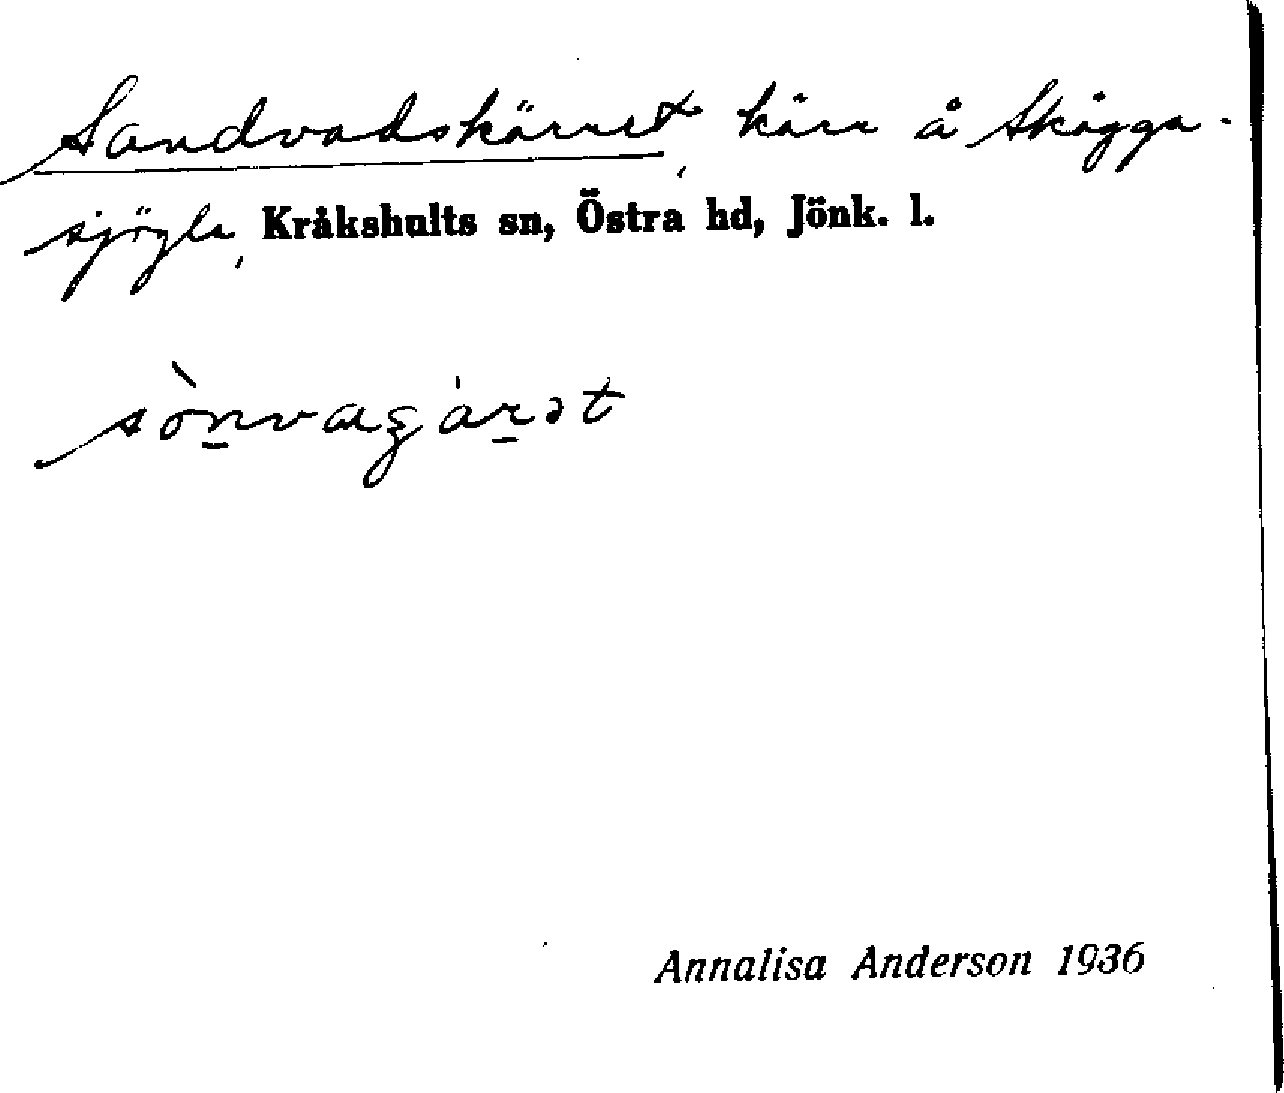 Sandvadskärret, kärr å Skägga-
sjögle, Kråkshults sn, Östra hd, Jönk. l.
Annalisa Anderson 1936